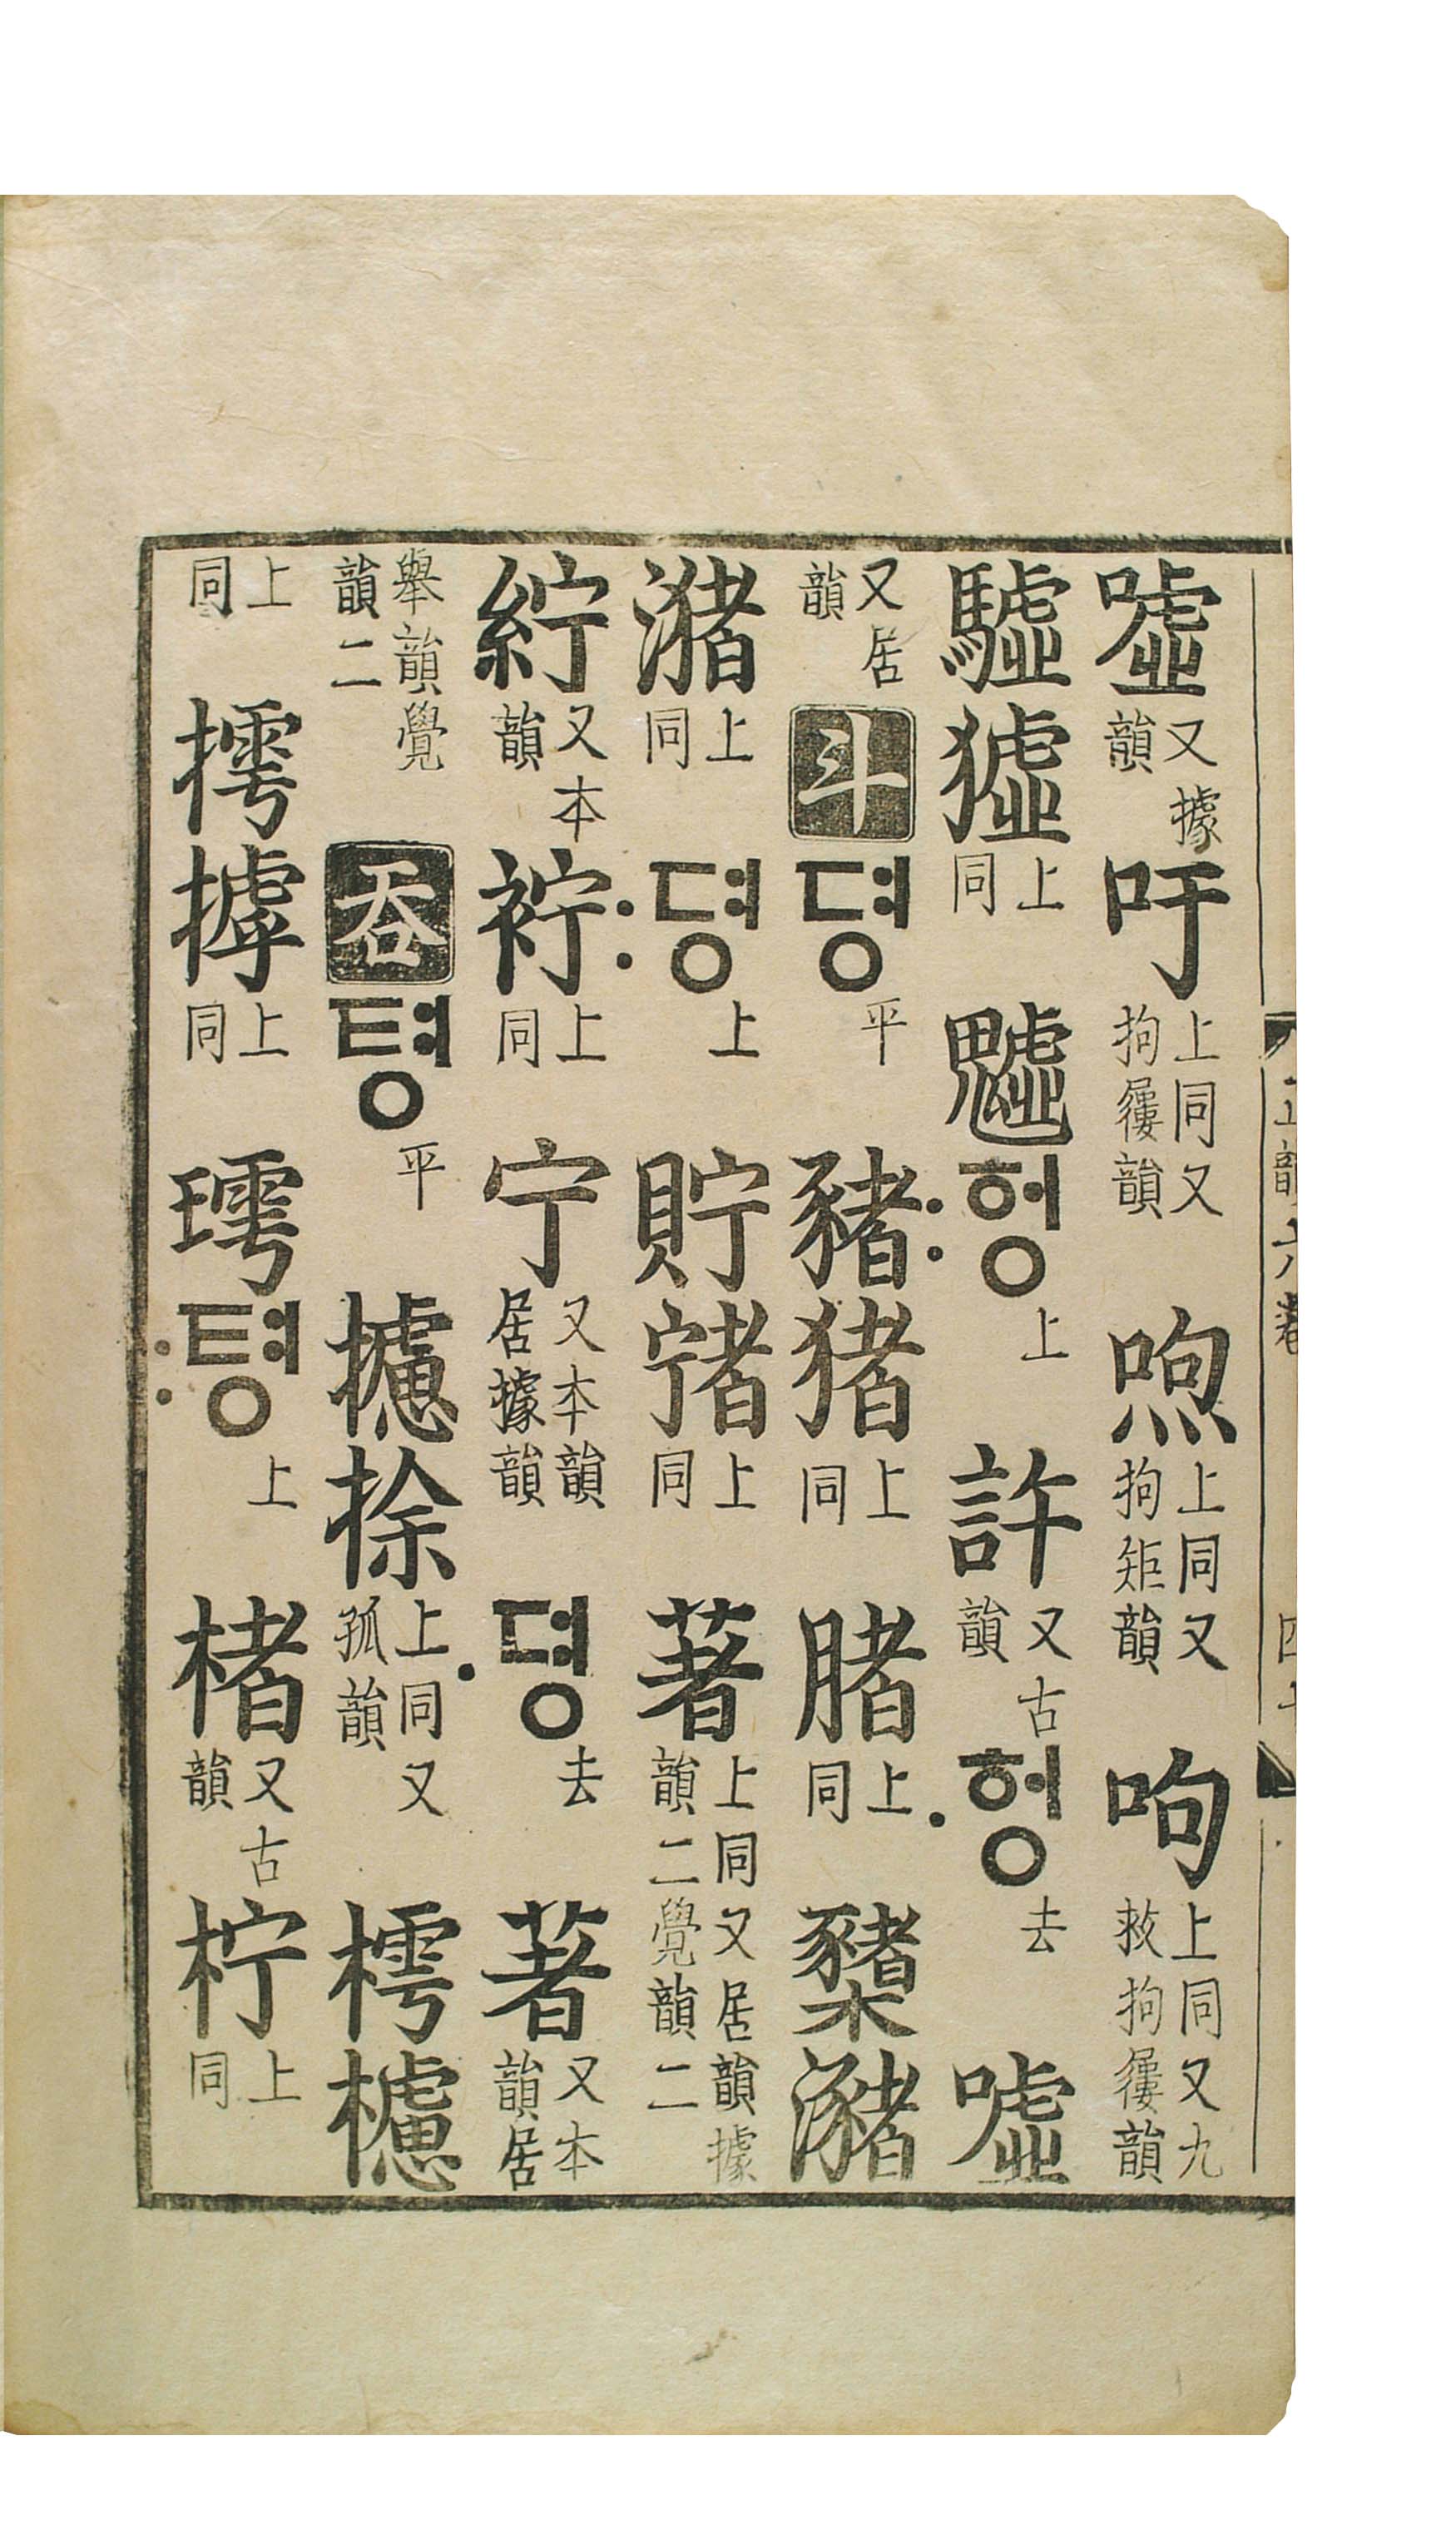 噓又據韻吁上同又拘屨韻喣上同又拘矩韻呴上同又九救拘屨韻
驉上同魖:헝上許又古韻·헝去噓
又居韻斗뎡平豬猪上同上同櫫瀦
潴上同:뎡上貯上同著上同又居韻據韻二覺韻二
紵又本韻上同宁又本韻居據韻·뎡去著又本韻居
舉韻覺韻二呑텽平攄捈上同又孤韻樗櫖
上同摴上同:텽上楮又古韻柠上同